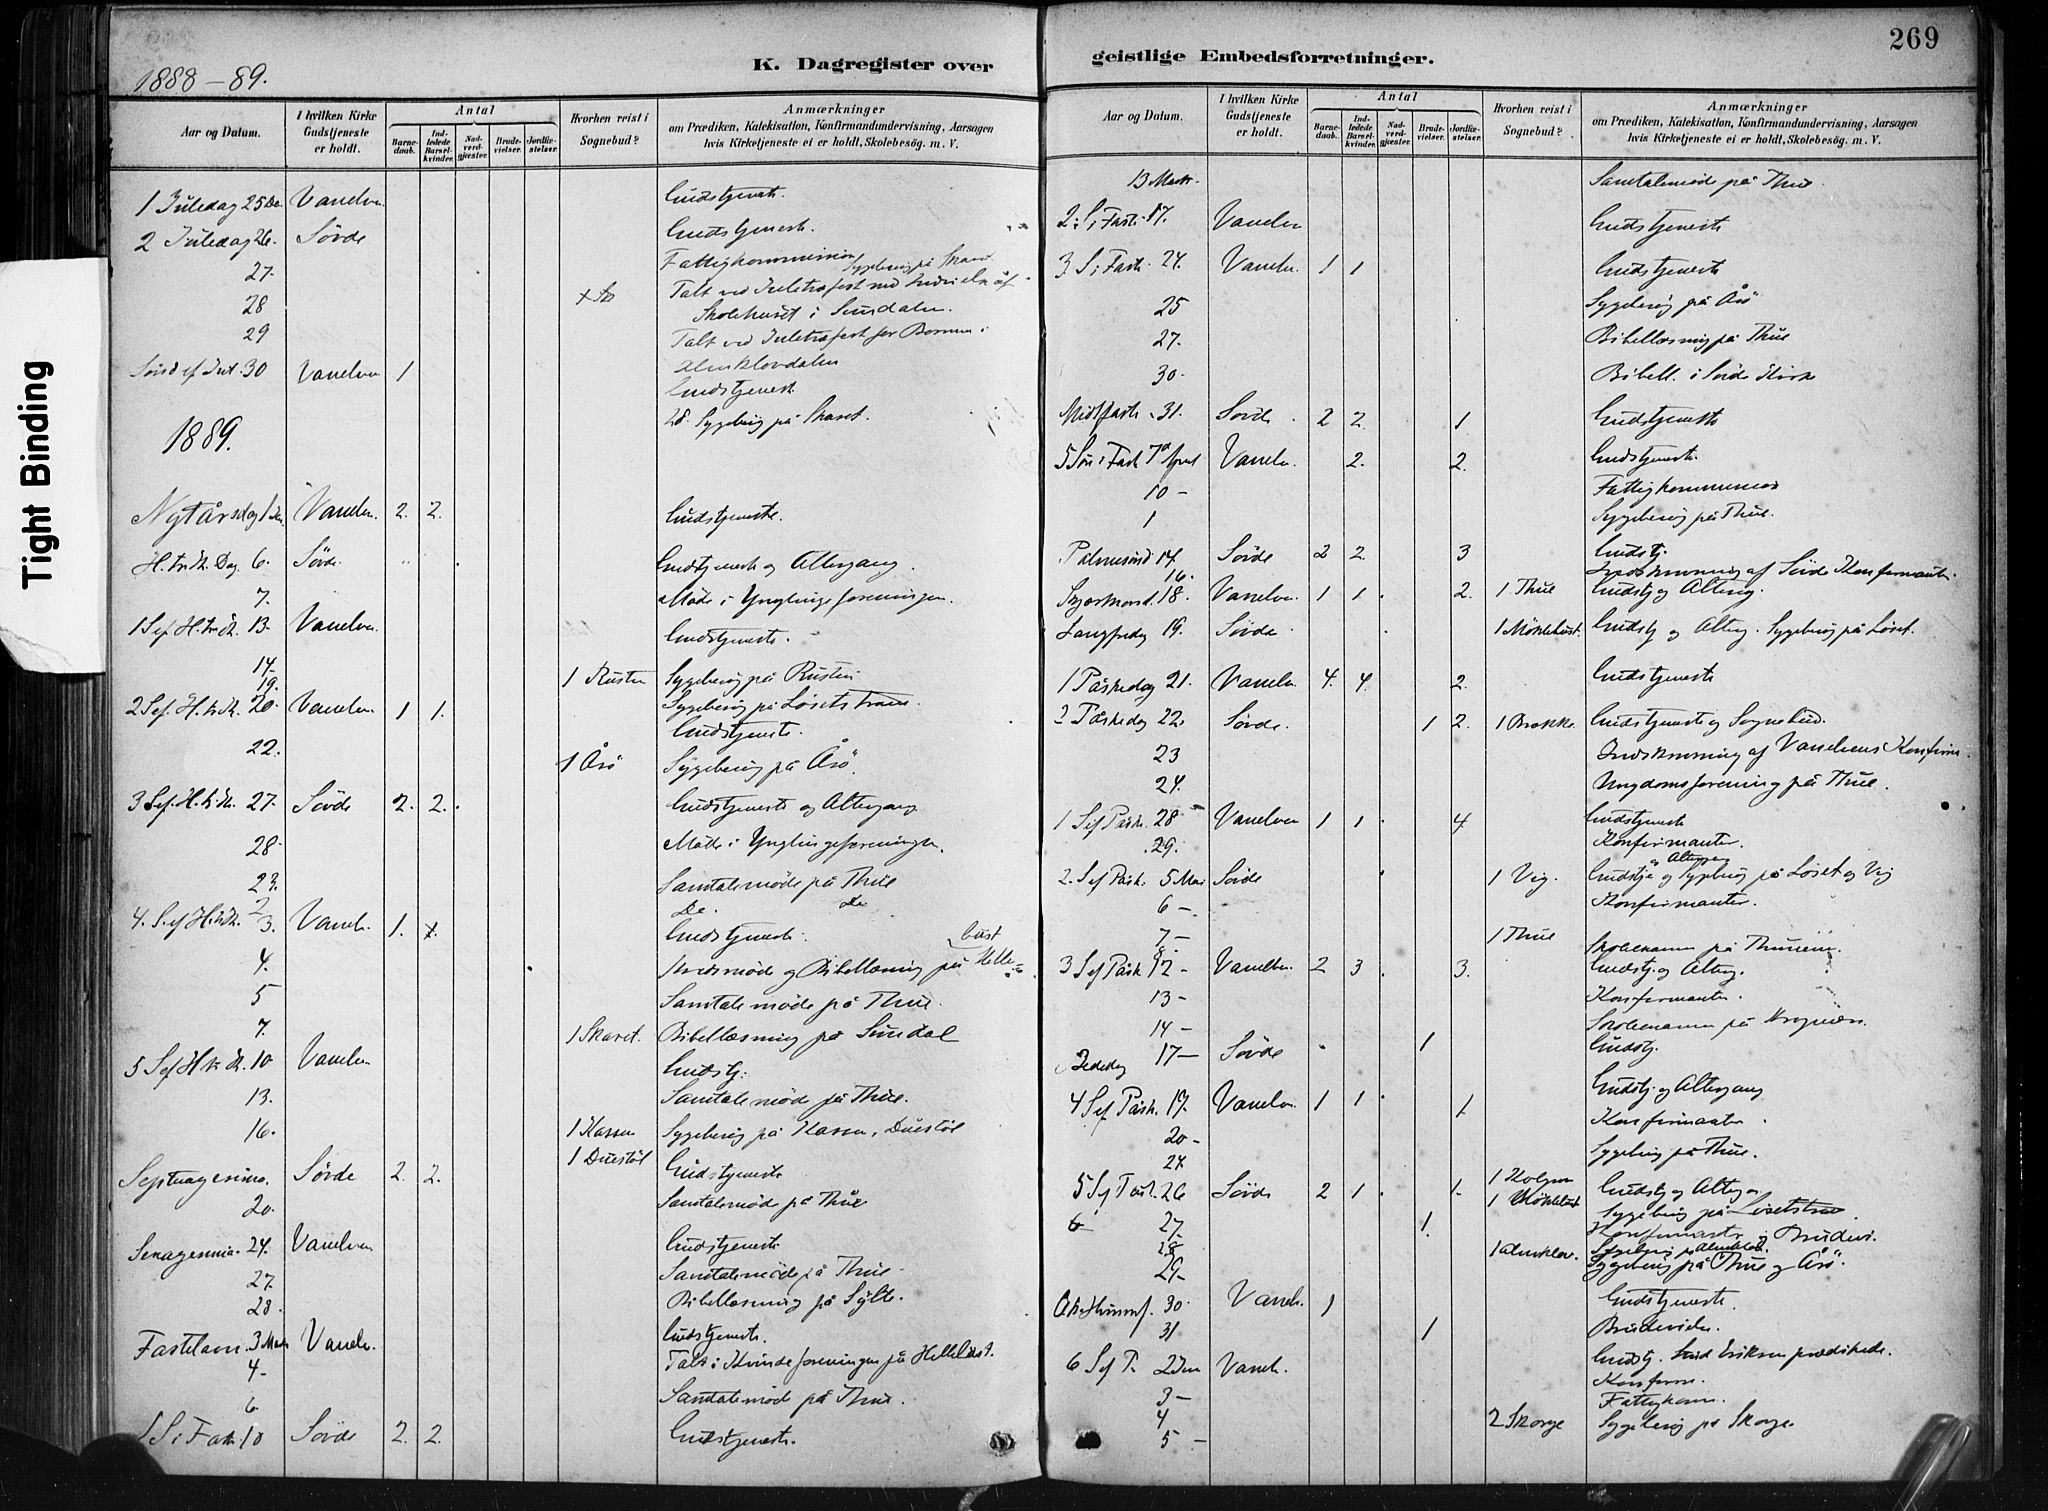 Tight Binding
1888-89.
K. Dagregister over
Aar og Datum.
I hvilken Kirke Gudstjeneste er holdt.
Antal
Barne-daab.
Ind-ledede Barsel-kvinder.
Nad-verd-gjæster.
Brude-vielser.
Jordfæ-stelser.
Hvorhen reist i Sognebud?
Anmærkninger
om Prædiken, Katekisation, Konfirmandundervisning, Aarsagen
hvis Kirketjeneste ei er holdt, Skolebesög. m. V.
1 Juledag 25 De. Vanelven Gudstjeneste.
2 Juledag 26. Sövde Gudstjeneste.
27. Fattigkommission
28 Talt ved Juletræfest
Skolehuset i Sundalen.
29 Talt ved Juletræfest for Börnene i
Almklovdalen
30 Vanelven 1 Gudstjeneste
28. Sygebesög på Skaret.
1889.
Nytårsdag 1 Jan. Vanelv. 2. 2. Gudstjeneste.
H. tr. K. Dag. 6. Sövde. Gudstjeneste og Altergang.
7. Möde i Ynglingeforeningen.
1 S ef. H. tr. K. 13. Vanelven. Gudstjeneste.
14. 1 Rusten Sygebesög på Rusten
19. Sygebesög på Løsetstrand
2 S ef. H. tr. K. 20. Vanelven. 1 1. Gudstjeneste.
22. 1 Årö Sygebesög på Årö.
3 S ef. H. tr. K. 27. Sövde 2. 2. Gudstjeneste og Altergang.
28. Möde i Ynglingeforeningen.
23. Samtalemöde på Thue
2 Do. Do
4. S. ef H. tr. K. 3. Vanelv. 1. Gudstjeneste.
4. og Bibellæsning på
5 Samtalemöde på Thue.
7. 1 Skaret. Bibellæsning på Sundal
5 S ef H tr K. 10 Vanelven Gudstj.
13. Samtalemöde på Thue.
16. 1 Kassen Sygebesög på Kassen, Duestöl
1 Duestöl
Septuagesima. Sövde 2. 2. Gudstjeneste
20. Samtalemöde på Thue
Sexagesima 24. Vanelven Gudstjeneste
27. Samtalemöde på Thue
28. Bibellæsning på Sylte.
Fastelavn. 3 Marts Vanelv. Gudstjeneste.
4 Talt i Kvindeforeningen på Hellebust.
6. Samtalemöde på Thue.
1 S. i Faste 10 Sövde 2. 2. Gudstjeneste.
269
geistlige Embedsforretninger.
Aar og Datum.
I hvilken Kirke Gudstjeneste er holdt.
Antal
Barne-daab.
Ind-ledede Barsel-kvinder.
Nad-verd-gjæster.
Brude-vielser.
Jordfæ-stelser.
Hvorhen reist i Sognebud?
Anmærkninger
om Prædiken, Katekisation, Konfirmandundervisning, Aarsagen
hvis Kirketjeneste ei er holdt, Skolebesög. m. V.
13 Marts Samtalemöde på Thue
2. S. i Faste 17. Vanelven Gudstjeneste
3. S. i Faste 24. Vanelv. 1 1 Gudstjeneste
25 Sygebesög på Årö
27. Bibellæsning på Thue
30. Bibell. i Sövde Kirke
Midfaste 31. Sövde. 2 2. 1 Gudstjeneste
5 Sön i Faste 7 April Vanelv. 2. 2. Gudstjeneste.
10 Fattigkommission
1 Sygebesög på Thue.
Palmesönd 14. Sövde 2 2. 3 Gudstj.
16. Indskrivning af Sövde Konfirmanter.
Skjærtorsd. 18. Vanelven 1 1. 2. 1 Thue Gudstj og Alterg.
Langfredag 19. Sövde. 1 Möklebust. Gudstj og Alterg. Sygebesög på Løset.
1 Påskedag 21. Vanelv 4. 4. 2. Gudstjeneste
2 Påskedag 22. Sövde. 1 2. 1 Brekke Gudstjeneste og Sognebud.
23 Indskrivning af Vanelvens Konfirm.
24. Ungdomsforening på Thue.
1 S ef Påsk. 28 Vanelven 1 1. 4. Gudstjeneste
29. Konfirmanter.
2. S ef Påsk. 5 Mai Sövde 1 Vig. Gudstj og Sygebesög på Løset og Vig
6 Konfirmanter.
7 1 Thue Skoleexamen på
3 S ef Påsk 12 Vanelven. 2 3. 3. Gudstj. og Alterg.
13 Konfirmanter.
14 Skoleexamen på
Bededag 17 Sövde 1 Gudstj.
4 S ef Påsk. 19. Vanelven. 1 1. 1 Gudstj og Altergang
20 Konfirmanter
24 Sygebesög på Thue.
5 S ef Påsk. 26 Sövde 2 1. 1. Gudstj og Alterg
1 Möklebust Sygebesög på
27. 1. Konfirmanter og Brudevi.
28 1 Almklov. Sygebesög på Almklov.
29 Sygebesög på Thue og Årö.
30. Vanelv. 1 Gudstjeneste.
31 1 Brudevielse.
6 S ef P. 2 Jun Vanelv. Gudstj. Eriksen prædikede.
3 Konfirm.
4 Fattigkom.
5 2 Skorge Sygebesög på Skorge